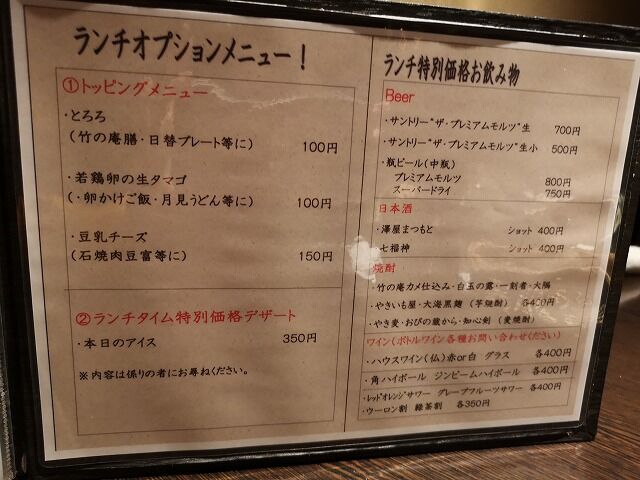 ランチオプションメニュー！
①トッピングメニュー
・とろろ
(竹の庵膳・日替プレート等に) 100円
・若鶏卵の生タマゴ
(・卵かけご飯・月見うどん等に) 100円
・豆乳チーズ
(石焼肉豆富等に) 150円
②ランチタイム特別価格デザート
・本日のアイス 350円
※内容は係りの者にお尋ねください。
ランチ特別価格お飲み物
Beer
・サントリー“ザ・プレミアムモルツ”生 700円
・サントリー“ザ・プレミアムモルツ”生小 500円
・瓶ビール(中瓶)
プレミアムモルツ 800円
スーパードライ 750円
日本酒
・澤屋まつもと ショット 400円
・七福神 ショット 400円
焼酎
・竹の庵カメ仕込み・白玉の露・一刻者・大隅
・やきいも屋・大海黒麹 (芋焼酎) 各400円
・やき麦・おびの蔵から・知心剣 (麦焼酎)
ワイン(ボトルワイン各種お問い合わせください)
・ハウスワイン(仏)赤or白 グラス 各400円
・角ハイボール ジンビームハイボール 各400円
・レッドオレンジサワー グレープフルーツサワー 各400円
・ウーロン割 緑茶割 各350円